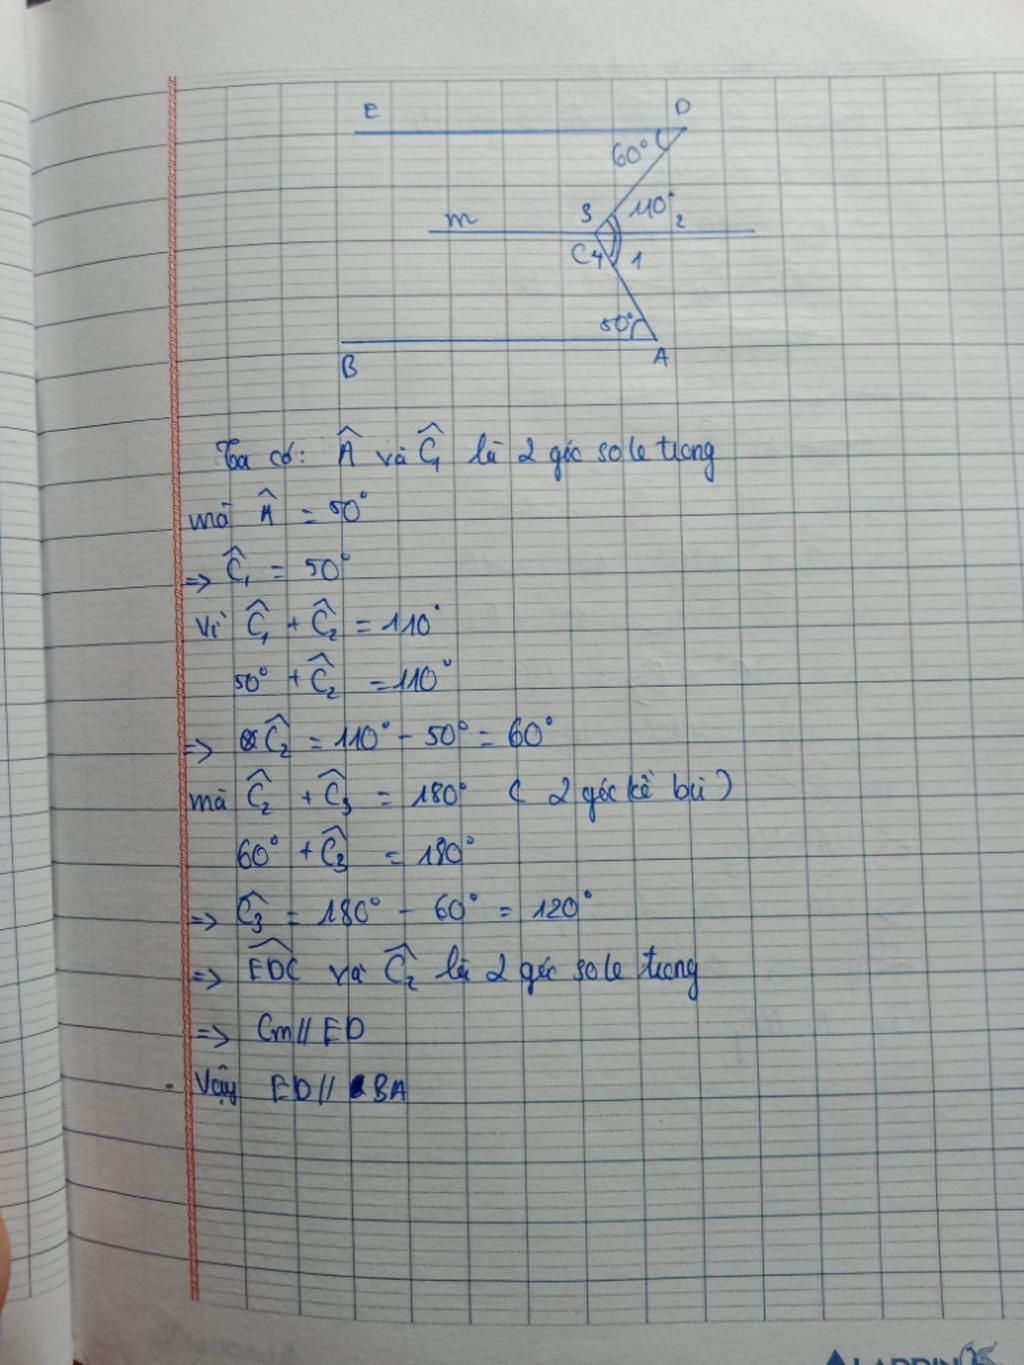 E D
60°
m 3 110° 2
C 4 1
50°
B A
Ta có: Â và Ĉ₁ là 2 góc sole trong
mà Â = 50°
=> Ĉ₁ = 50°
Vì Ĉ₁ + Ĉ₂ = 110°
50° + Ĉ₂ = 110°
=> Ĉ₂ = 110° - 50° = 60°
mà Ĉ₂ + Ĉ₃ = 180° ( 2 góc kề bù )
60° + Ĉ₃ = 180°
=> Ĉ₃ = 180° - 60° = 120°
=> EDC và Ĉ₂ là 2 góc sole trong
=> Cm // ED
Vậy ED // BA